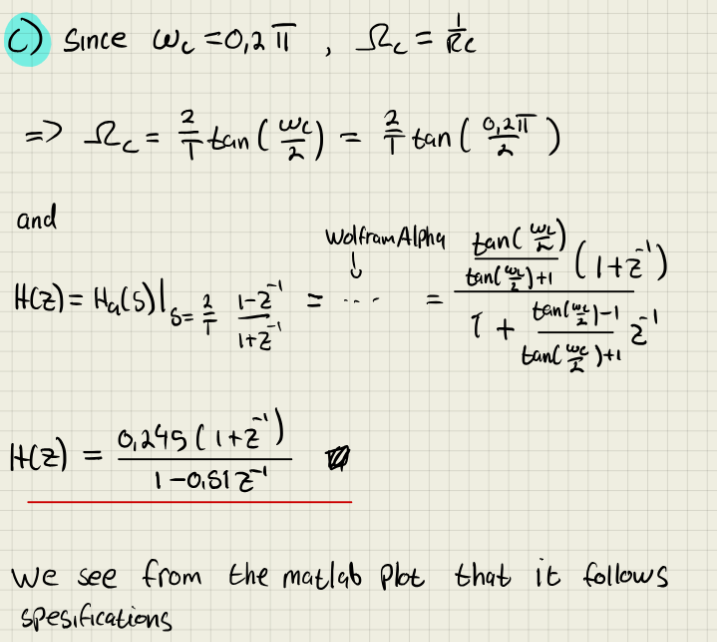 c) Since ω_c = 0,2π , Ω_c = 1/RC
=> Ω_c = 2/T tan(ω_c/2) = 2/T tan(0,2π/2)
and
Wolfram Alpha
H(z) = H_a(s)|_{s = 2/T (1-z^{-1})/(1+z^{-1})} = ... = (tan(ω_c/2)/(tan(ω_c/2)+1) (1+z^{-1})) / (1 + (tan(ω_c/2)-1)/(tan(ω_c/2)+1) z^{-1})
H(z) = 0,245(1+z^{-1}) / (1-0,51z^{-1})
We see from the matlab plot that it follows
spesifications